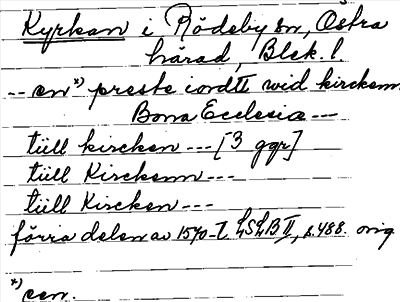 Kyrkan i Rödeby sn, Östra
härad, Blek. l.
-- en *) preste iordt wid kircken
Bona Ecclesia ---
tüll kircken --- [3 ggr]
tüll Kirckenn ---
tüll Kircken ---
förra delen av 1570-t. LSLB II, s. 488. orig
*) een.